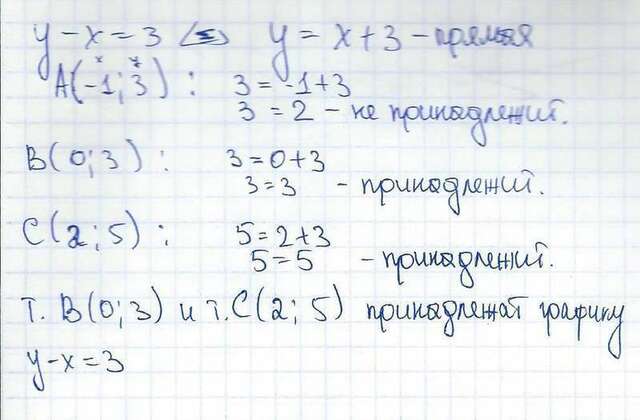 y - x = 3 <=> y = x + 3 - прямая
x y
A(-1; 3) : 3 = -1 + 3
3 = 2 - не принадлений.
B(0; 3) : 3 = 0 + 3
3 = 3 - принадлений.
C(2; 5) : 5 = 2 + 3
5 = 5 - принадлений.
т. B(0; 3) и т. C(2; 5) принадлежат графику
y - x = 3